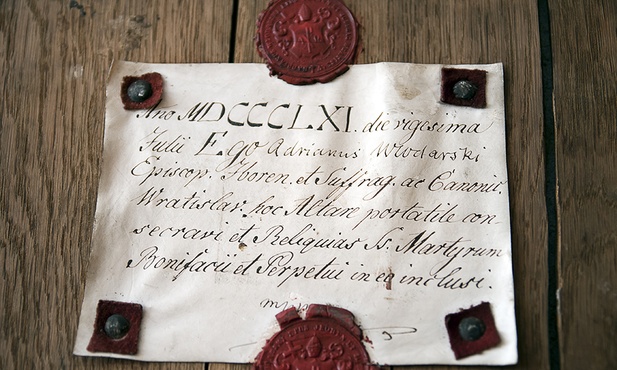 Ano MDCCCLXI. die vigesima
Julii Ego Adrianus Włodarski
Episcop. Iboren. et Suffrag. ac Canonic.
Wratislav. hoc Altare portatile con-
secravi et Reliquias Ss. Martyrum
Bonifacii et Perpetui in eo inclusi.